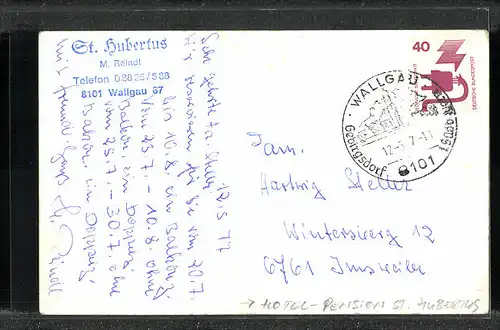 St. Hubertus
M. Reindl
Telefon 08825/588
8101 Wallgau 67
12.5.77
Sehr geehrte Fa. Steller
Wir reservieren für Sie vom 20.7.
bis 10.8. ein Balkonz.
vom 23.7. - 10.8. ohne
Balkon, ein Doppelz.
vom 23.7. - 30.7. ohne
Balkon ein Doppelz.
Mit freundl. Gruß
40
DEUTSCHE BUNDESPOST
WALLGAU
Gebirgsdorf
8101
Fam.
Hartwig Steller
Wintersberg 12
6761 Imsweiler
→ HOTEL-PENSION ST. HUBERTUS